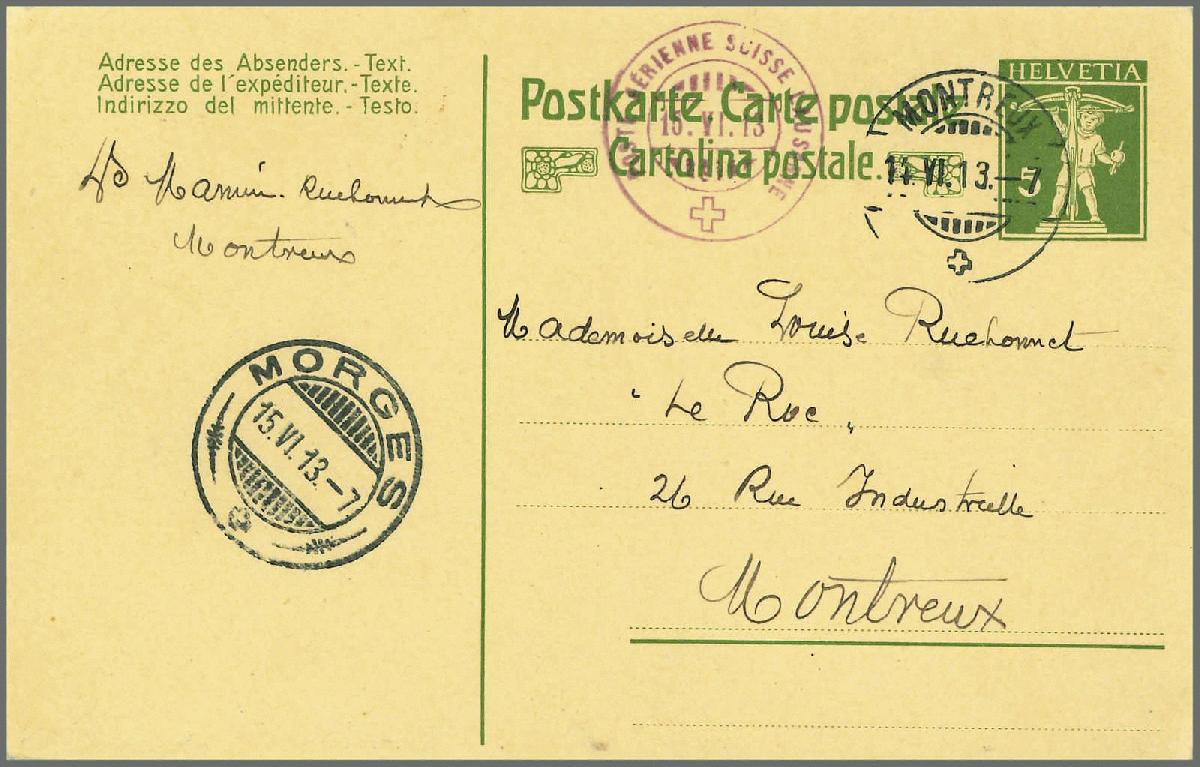 Adresse des Absenders. - Text.
Adresse de l'expéditeur. - Texte.
Indirizzo del mittente. - Testo.
Ruchonnet
Montreux
MORGES
15.VI.13.–7
Postkarte. Carte postale.
Cartolina postale.
POSTE AÉRIENNE SUISSE LAUSANNE
15.VI.13
MONTREUX
14.VI.13.–7
HELVETIA
5
Mademoiselle Louise Ruchonnet
"Le Roc"
26 Rue Industrielle
Montreux